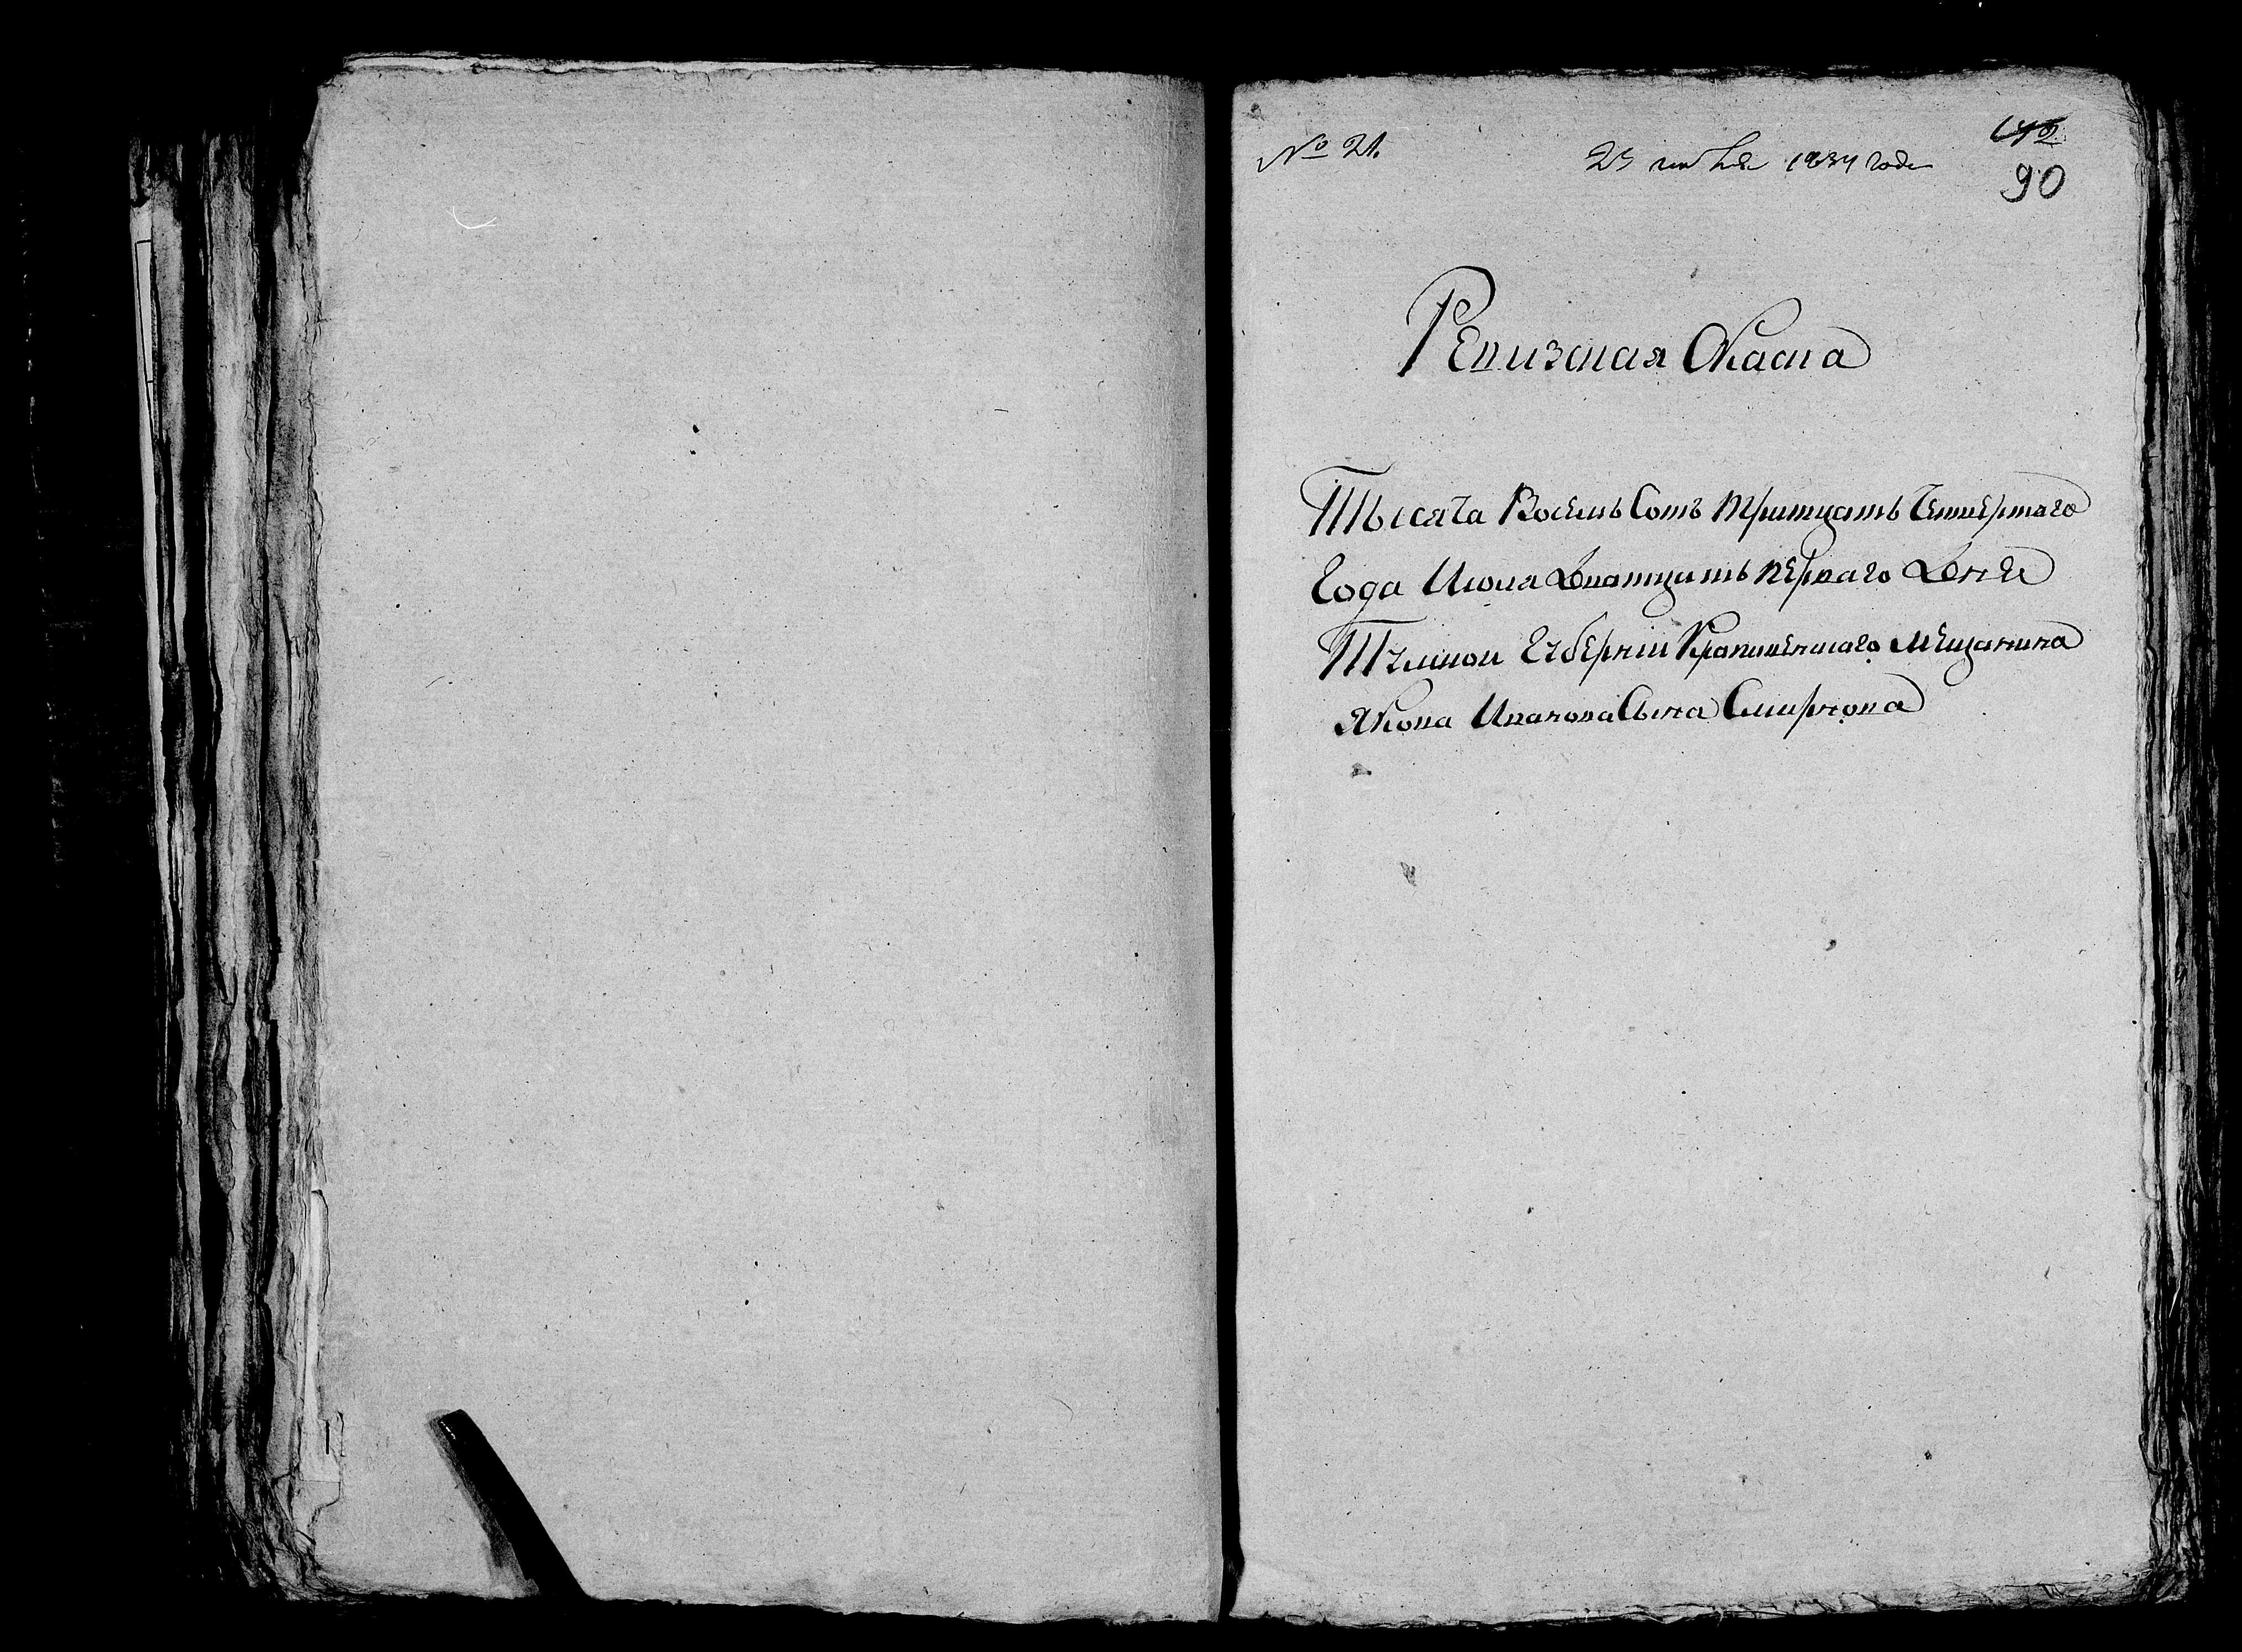 № 21.
25 июля 1834 года
90
Ревизская Скаска
Тысяча Восемь Сотъ тритцать Четвертаго
Года Июля Дватцать перваго Дня
Тулской Губернии Крапивенскаго мещанина
Якова Иванова Сына Смирнова